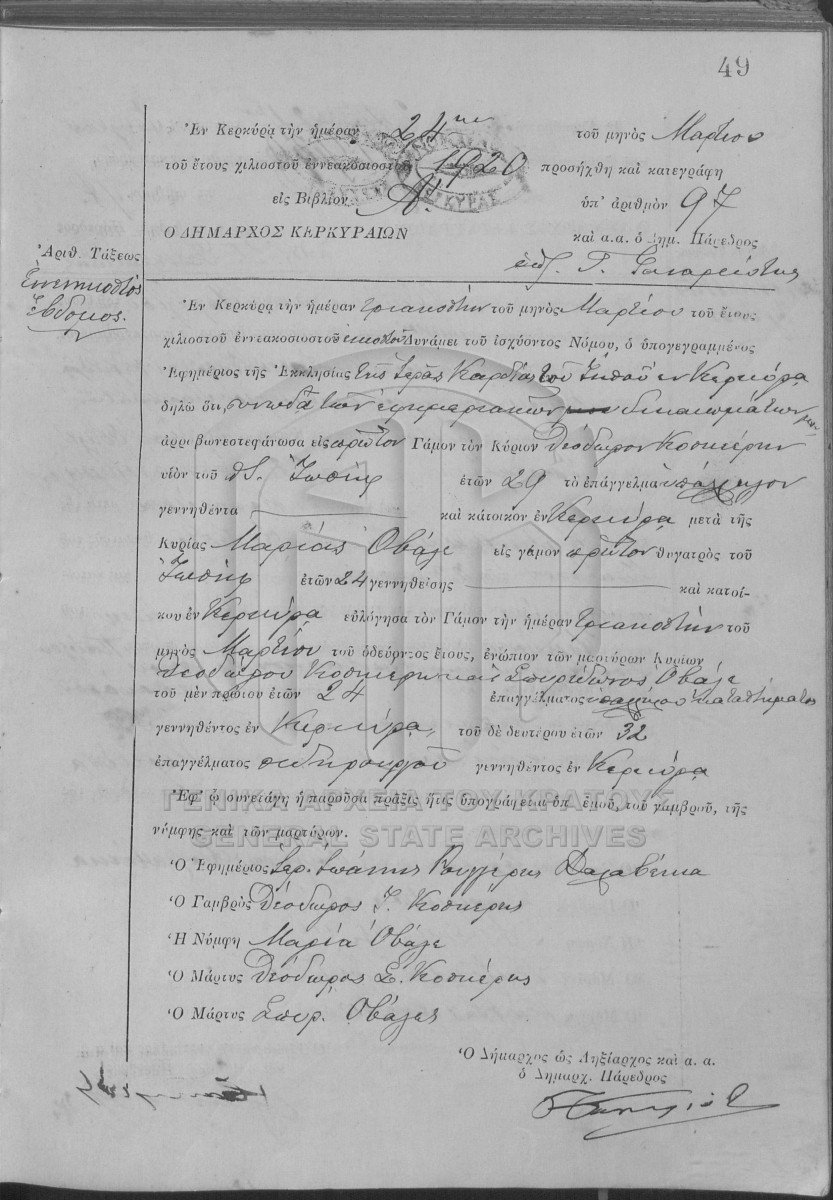 49
Ἐν Κερκύρᾳ τὴν ἡμέραν 24ην τοῦ μηνὸς Μαρτίου
τοῦ ἔτους χιλιοστοῦ ἐννεακοσιοστοῦ 1920 προσήχθη καὶ κατεγράφη
εἰς Βιβλίον Α΄. ὑπ' ἀριθμὸν 97
Ὁ ΔΗΜΑΡΧΟΣ ΚΕΡΚΥΡΑΙΩΝ καὶ α.α. ὁ Δημ. Πάρεδρος
Ἀριθ. Τάξεως
Ἐννενηκοστὸς
Ἕβδομος.
Ἐν Κερκύρᾳ τὴν ἡμέραν τριακοστὴν τοῦ μηνὸς Μαρτίου τοῦ ἔτους
χιλιοστοῦ ἐννεακοσιοστοῦ εἰκοστοῦ Δυνάμει τοῦ ἰσχύοντος Νόμου, ὁ ὑπογεγραμμένος
Ἐφημέριος τῆς Ἐκκλησίας τῆς Ἱερᾶς Καρδίας τοῦ Ἰησοῦ ἐν Κερκύρᾳ
δηλῶ ὅτι, συνωδᾷ τῶν ἐφημεριακῶν δικαιωμάτων μου
ἀρραβωνεοστεφάνωσα εἰς πρῶτον Γάμον τὸν Κύριον Θεόδωρον Κοσκέρην
υἱὸν τοῦ Ἰωσὴφ ἐτῶν 29 τὸ ἐπάγγελμα ὑπάλληλον
γεννηθέντα καὶ κάτοικον ἐν Κερκύρᾳ μετὰ τῆς
Κυρίας Μαρίας Ὀβάλε εἰς γάμον πρῶτον θυγατρὸς τοῦ
Ἰωσὴφ ἐτῶν 24 γεννηθείσης καὶ κατοί-
κου ἐν Κερκύρᾳ εὐλόγησα τὸν Γάμον τὴν ἡμέραν τριακοστὴν τοῦ
μηνὸς Μαρτίου τοῦ ὁδεύοντος ἔτους, ἐνώπιον τῶν μαρτύρων Κυρίων
Θεοδώρου Κοσκέρη καὶ Σπυρίδωνος Ὀβάλε
τοῦ μὲν πρώτου ἐτῶν 24 ἐπαγγέλματος ὑπαλλήλου καταστήματος
γεννηθέντος ἐν Κερκύρᾳ, τοῦ δὲ δευτέρου ἐτῶν 32
ἐπαγγέλματος σιδηρουργοῦ γεννηθέντος ἐν Κερκύρᾳ
Ἐφ' ᾧ συνετάγη ἡ παροῦσα πρᾶξις ἥτις ὑπογράφεται ὑπ' ἐμοῦ, τοῦ γαμβροῦ, τῆς
νύμφης καὶ τῶν μαρτύρων.
ΓΕΝΙΚΑ ΑΡΧΕΙΑ ΤΟΥ ΚΡΑΤΟΥΣ
GENERAL STATE ARCHIVES
Ὁ Ἐφημέριος Ἱερ. Ἰωάννης
Ὁ Γαμβρὸς Θεόδωρος Ι. Κοσκέρης
Ἡ Νύμφη Μαρία Ὀβάλε
Ὁ Μάρτυς Θεόδωρος Σ. Κοσκέρης
Ὁ Μάρτυς Σπυρ. Ὀβάλες
Ὁ Δήμαρχος ὡς Ληξίαρχος καὶ α. α.
ὁ Δημαρχ. Πάρεδρος